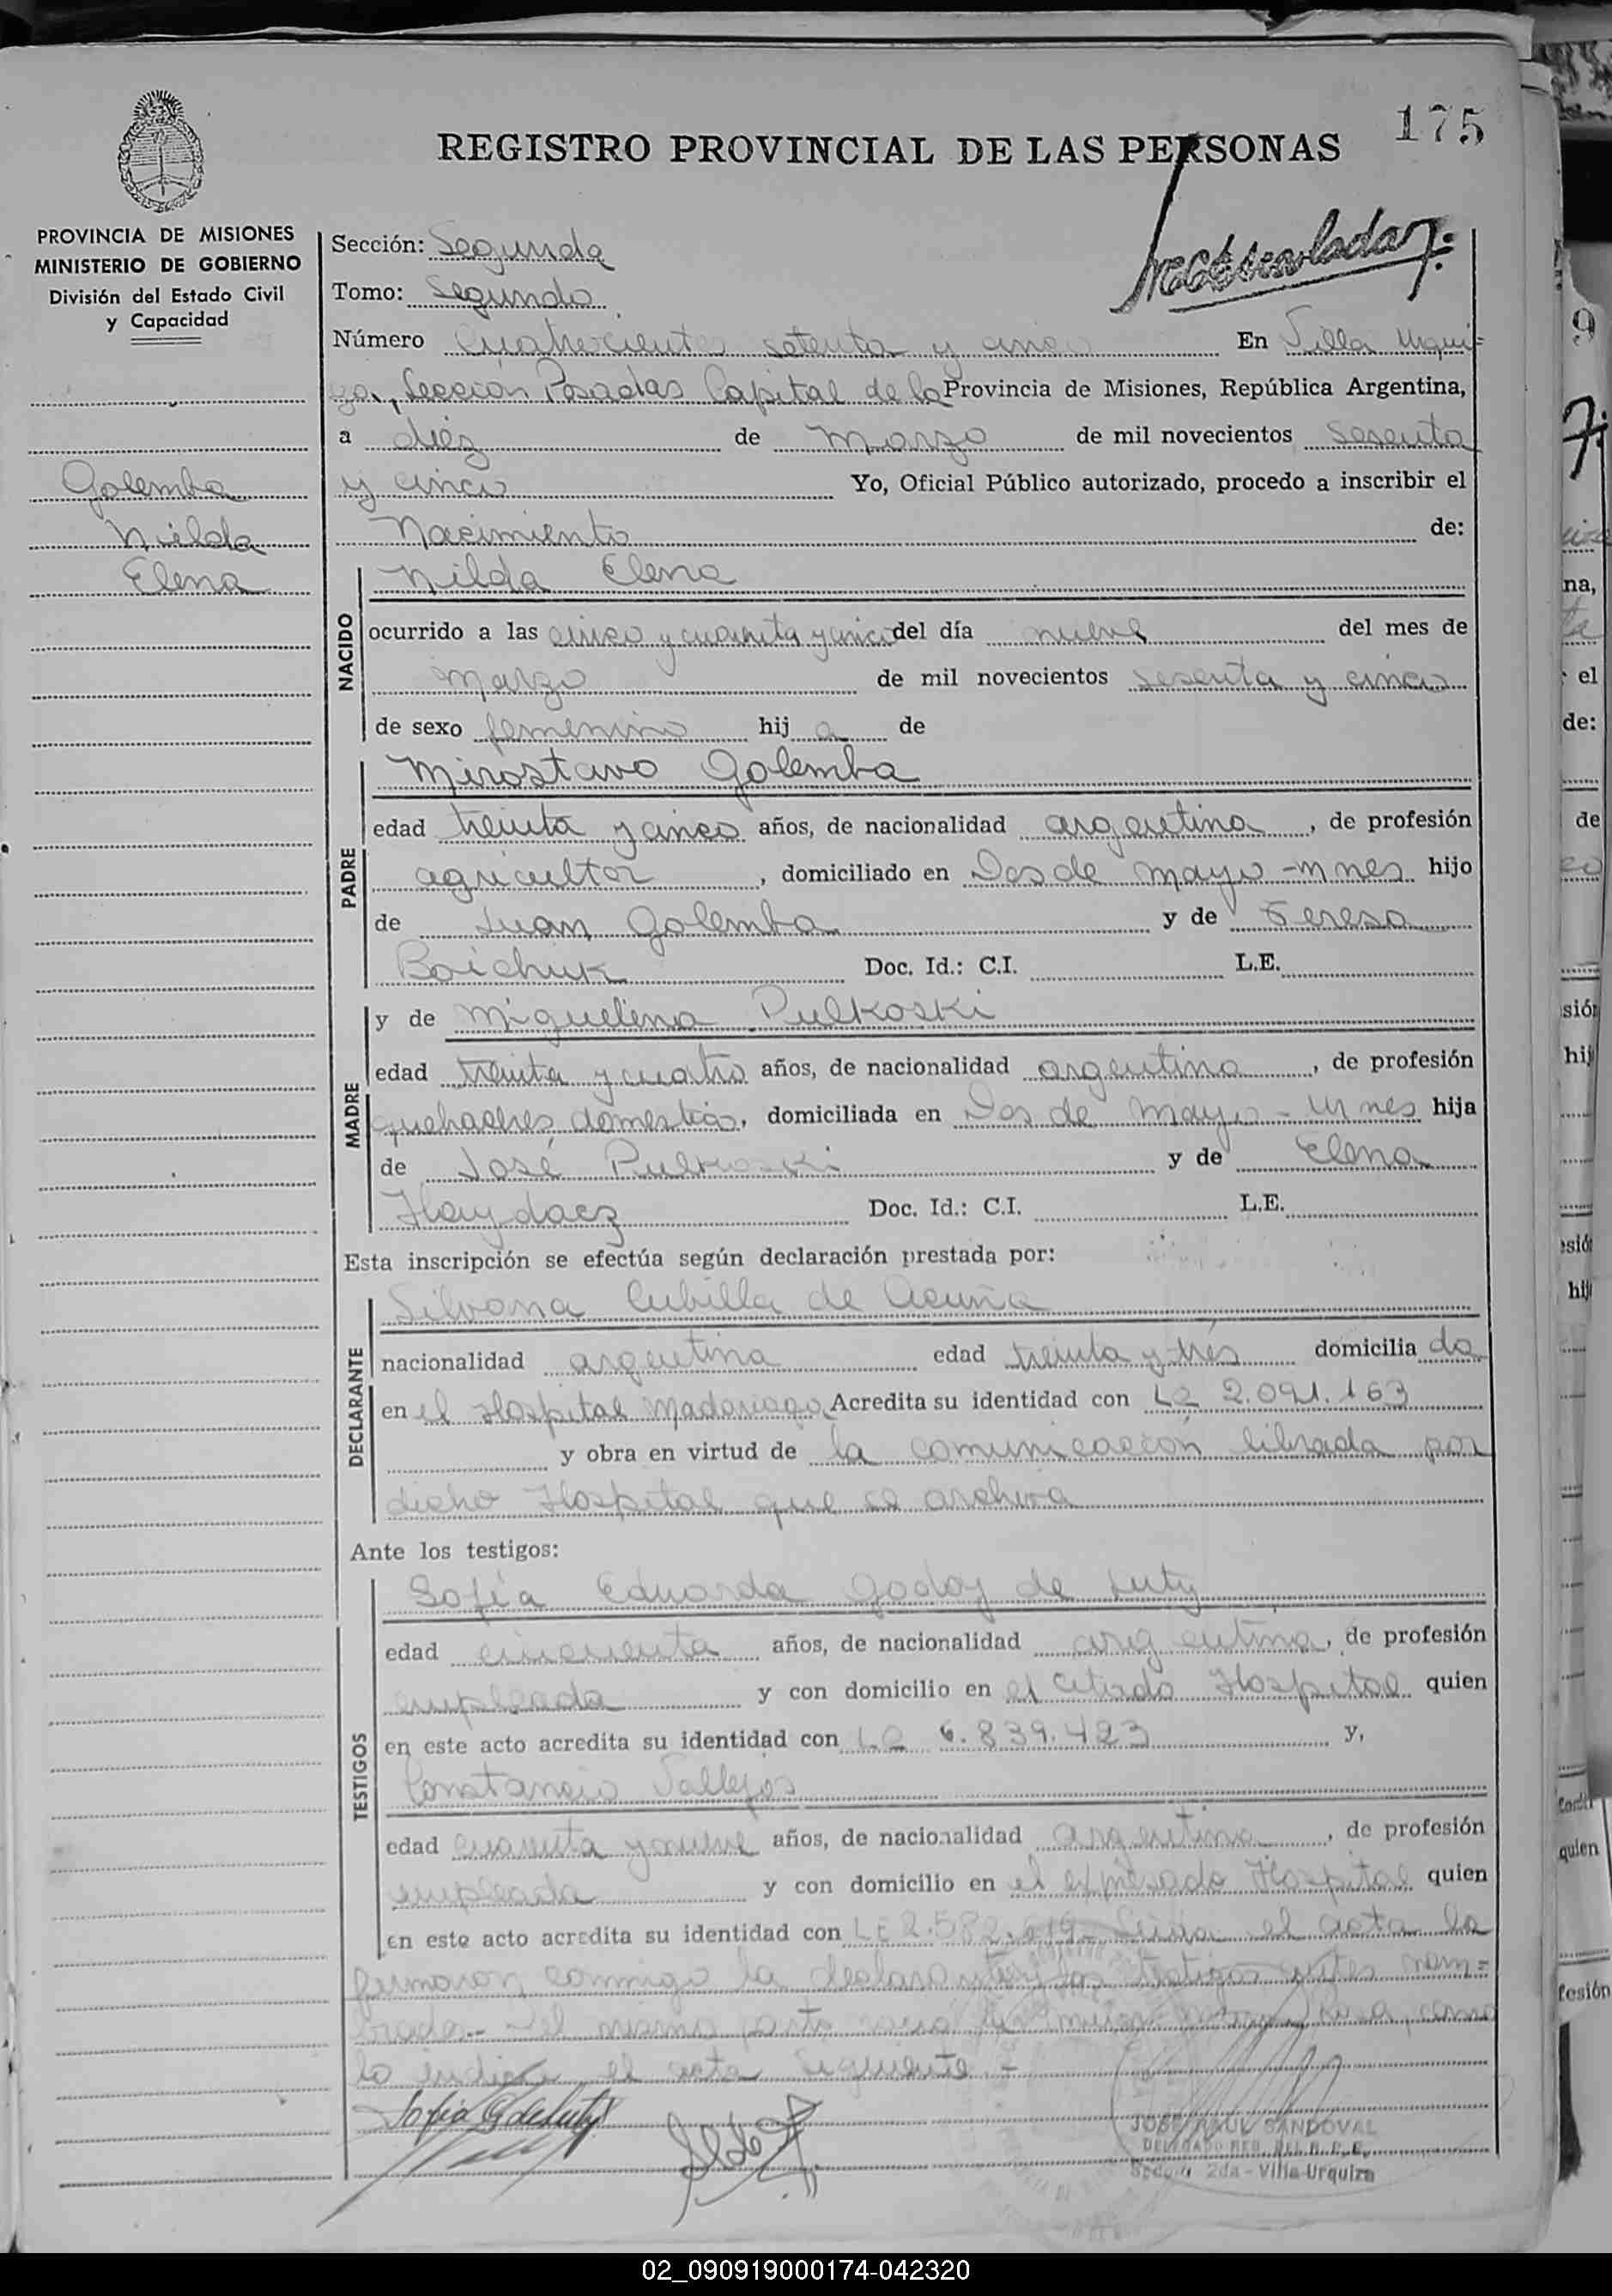 175
REGISTRO PROVINCIAL DE LAS PERSONAS
PROVINCIA DE MISIONES
MINISTERIO DE GOBIERNO
División del Estado Civil
y Capacidad
Golemba
Nilda
Elena
Sección: Segunda
Tomo: Segundo
Número Cuatrocientos setenta y cinco En Villa Urqui=
za, Sección Posadas Capital de la Provincia de Misiones, República Argentina,
a diez de Marzo de mil novecientos sesenta
y cinco Yo, Oficial Público autorizado, procedo a inscribir el
Nacimiento de:
NACIDO
Nilda Elena
ocurrido a las cinco y cuarenta y cinco del día nueve del mes de
Marzo de mil novecientos sesenta y cinco
de sexo femenino hij a de
PADRE
Mirostavo Golemba
edad treinta y cinco años, de nacionalidad argentina, de profesión
agricultor, domiciliado en Dos de mayo - Mnes hijo
de Juan Golemba y de Teresa
Boichuk Doc. Id.: C.I. L.E.
MADRE
y de Miguelina Pulkoski
edad treinta y cuatro años, de nacionalidad argentina, de profesión
quehaceres domesticos, domiciliada en Dos de Mayo - Mnes hija
de José Pulkoski y de Elena
Haydacz Doc. Id.: C.I. L.E.
Esta inscripción se efectúa según declaración prestada por:
DECLARANTE
Silvana Cubilla de Acuña
nacionalidad argentina edad treinta y tres domicilia da
en el Hospital Madariaga Acredita su identidad con LC 2.091.163
y obra en virtud de la comunicación librada por
dicho Hospital que se archiva
Ante los testigos:
TESTIGOS
Sofía Eduarda Godoy de Luty
edad cincuenta años, de nacionalidad argentina, de profesión
empleada y con domicilio en el citado Hospital quien
en este acto acredita su identidad con LC 6.839.423 y,
Constancio Vallejos
edad cuarenta y nueve años, de nacionalidad argentina, de profesión
empleada y con domicilio en el expresado Hospital quien
en este acto acredita su identidad con LE 2.582.619- Leída el acta la
firmaron conmigo la declarante y los testigos antes nom=
brados.- del mismo parto como
lo indica el acta siguiente.-
Sofia G de Luty
JOSE RAUL SANDOVAL
DELEGADO REG. DEL R. P. P.
Sección 2da - Villa Urquiza
02_090919000174-042320